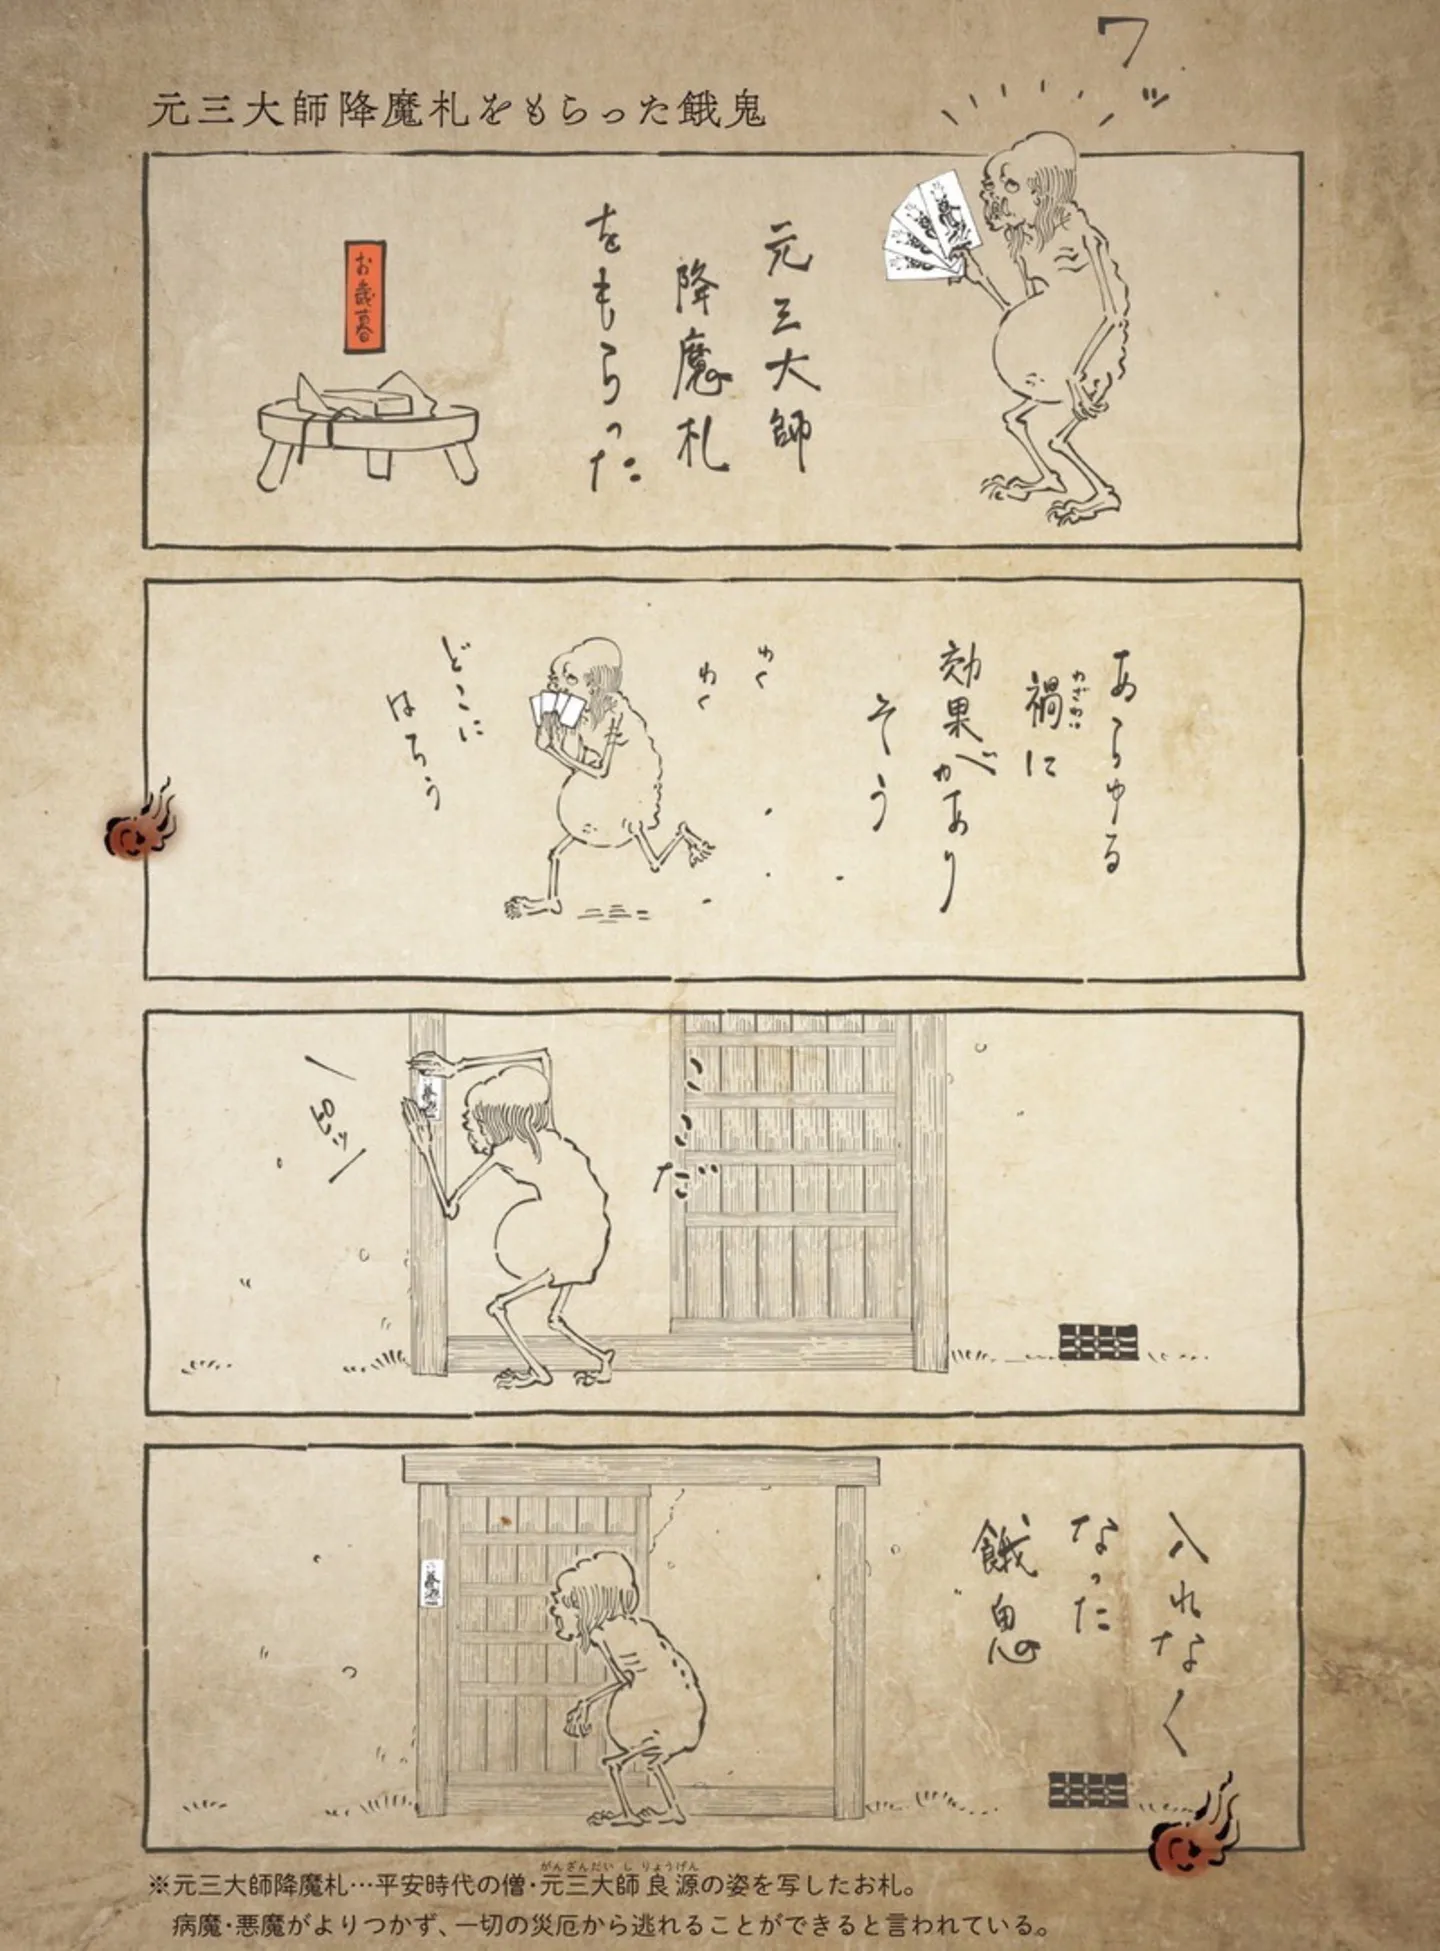 元三大師降魔札をもらった餓鬼
ワッ
元三大師
降魔札
をもらった
お歳暮
あらゆる
禍に
わざわい
効果があり
そう
わく
わく
どこに
はろう
ここだ
入れなく
なった
餓鬼
※元三大師降魔札…平安時代の僧・元三大師良源の姿を写したお札。
がんざんだいしりょうげん
病魔・悪魔がよりつかず、一切の災厄から逃れることができると言われている。